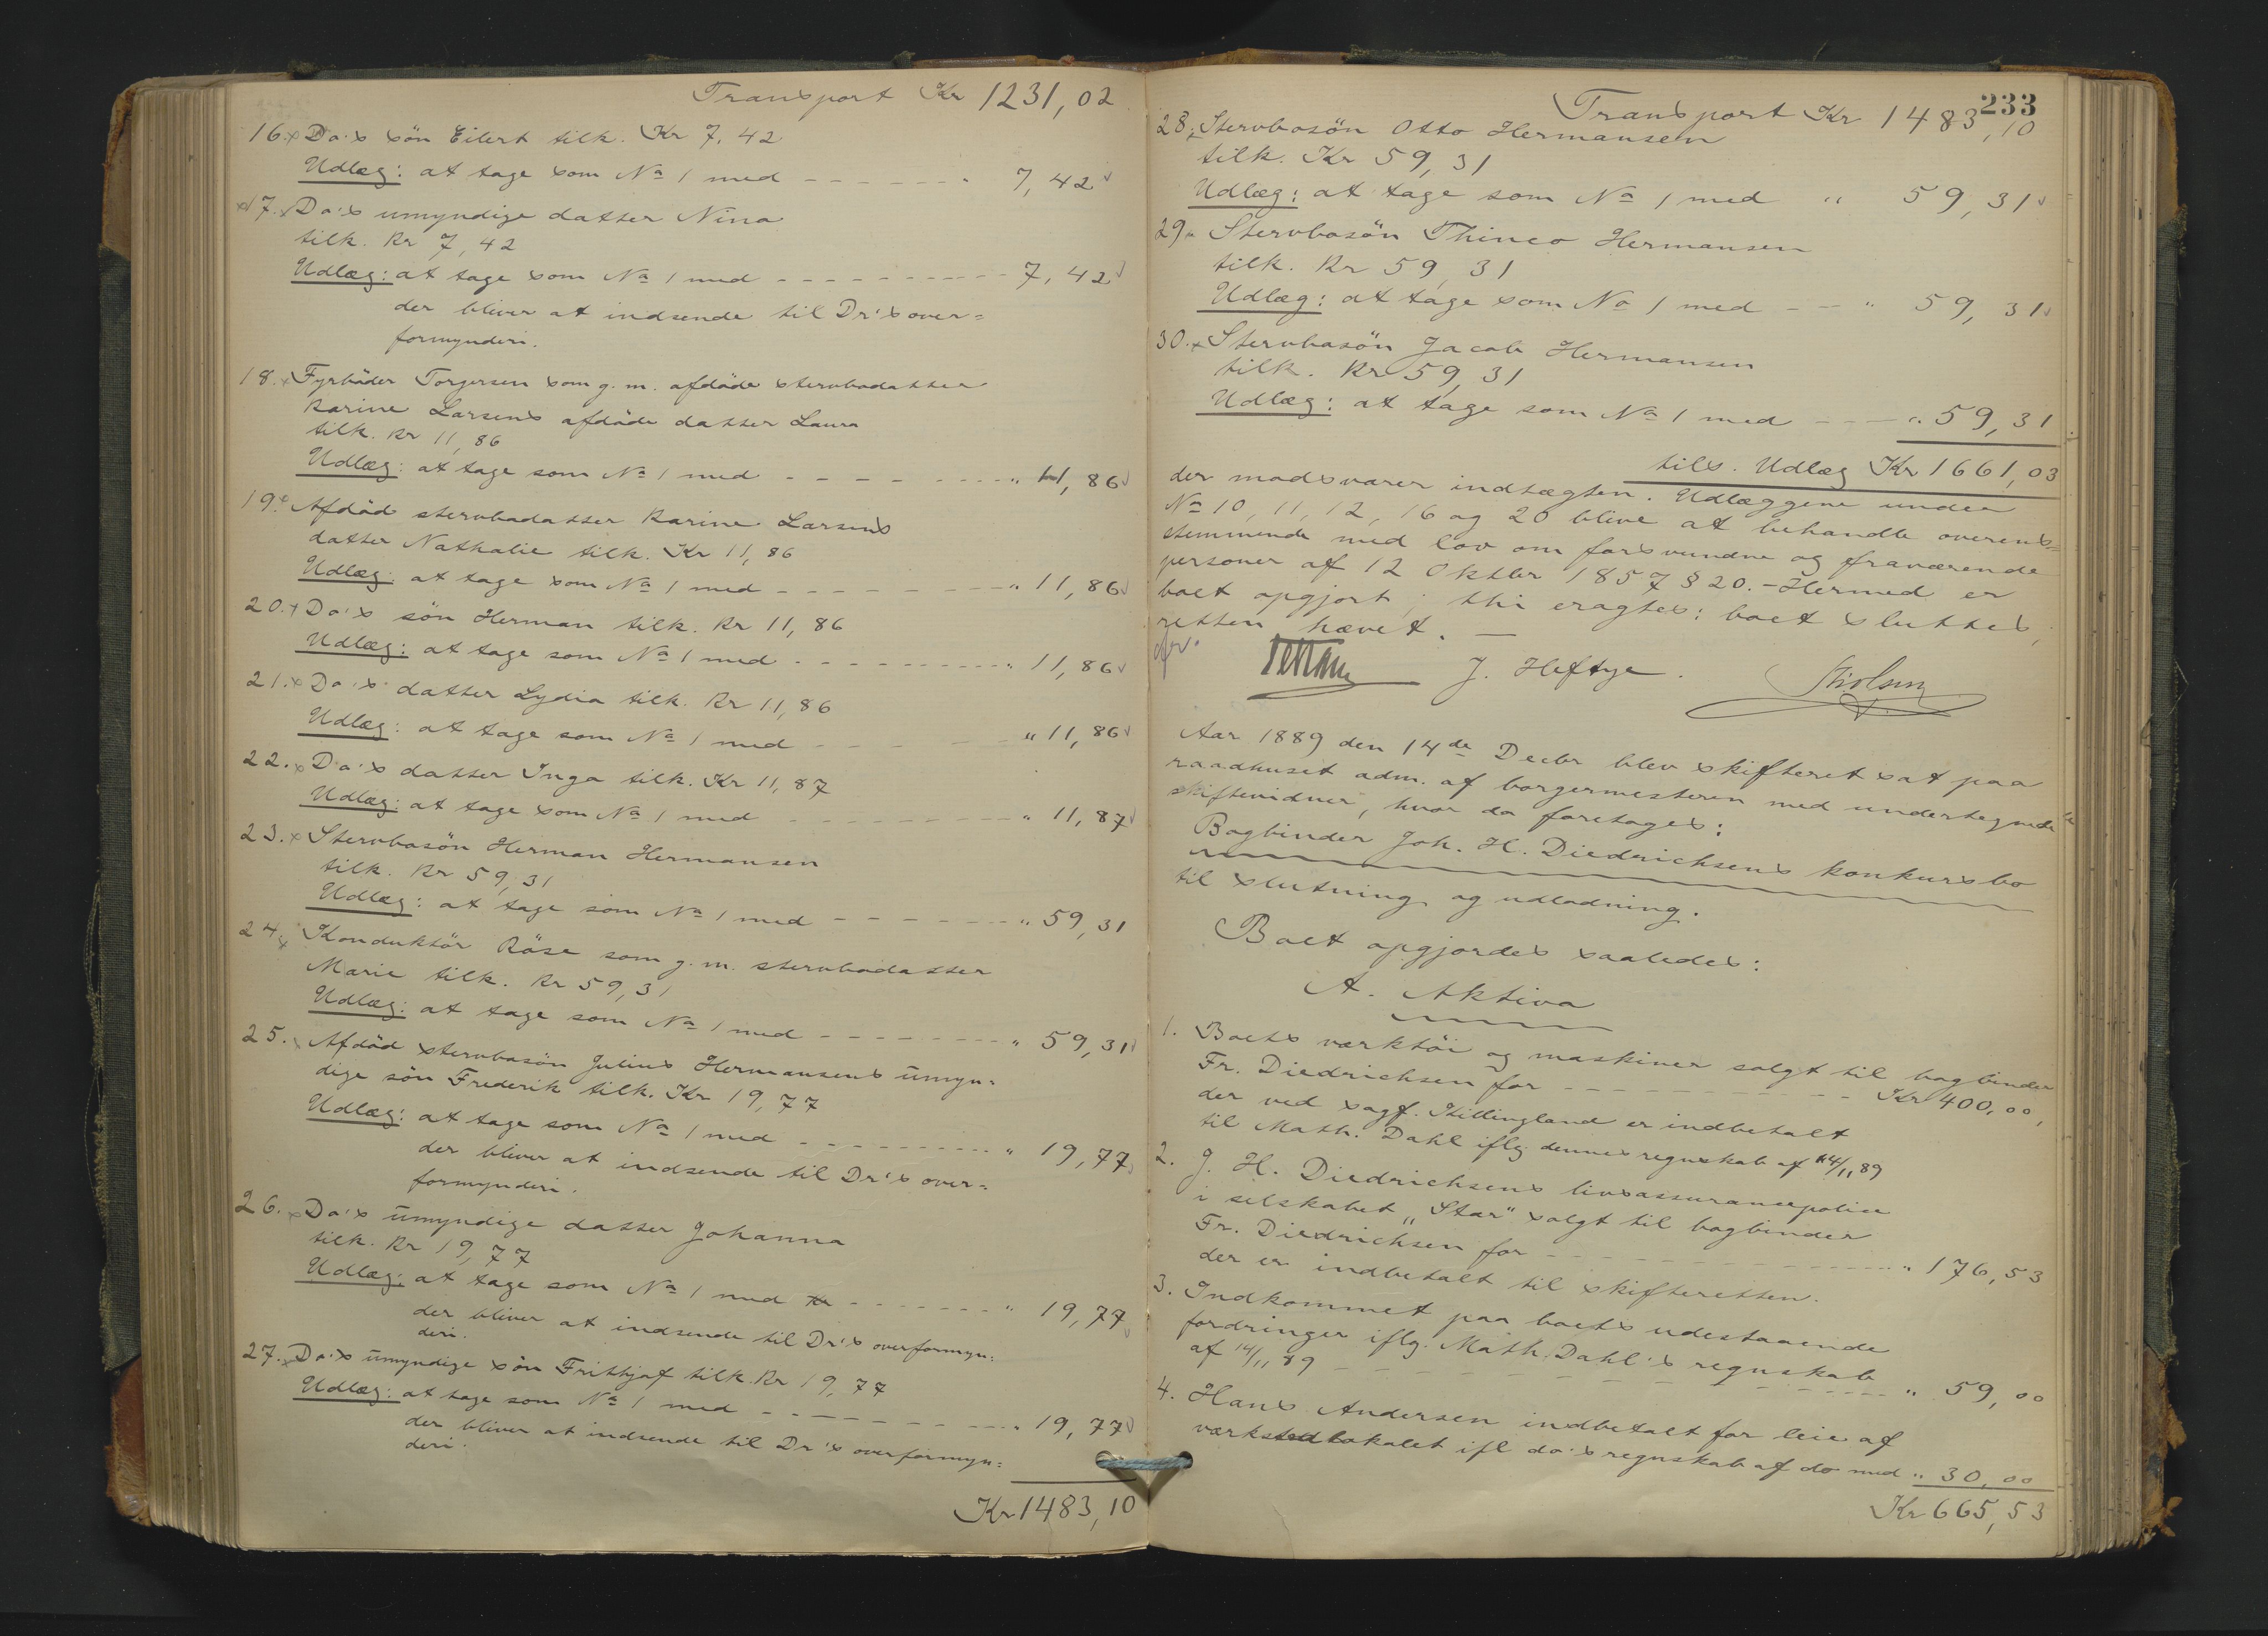 Transport Kr 1231,02
16. Do's søn Eilert tilk. Kr 7,42
Udlæg: at tage som No 1 med - - - - - - " 7,42
17. Do's umyndige datter Nina
tilk. Kr 7,42
Udlæg: at tage som No 1 med - - - - - - - - 7,42
der bliver at indsende til Dr's over=
formynderi.
18. Fyrbøder Torgersen som g. m. afdøde stervbodatter
Karine Larsens afdøde datter Laura
tilk. Kr 11,86
Udlæg: at tage som No 1 med - - - - - - - - " 11,86
19. Afdød stervbodatter Karine Larsens
datter Nathalie tilk. Kr 11,86
Udlæg: at tage som No 1 med - - - - - - - - " 11,86
20. Do's søn Herman tilk. Kr 11,86
Udlæg: at tage som No 1 med - - - - - - - - " 11,86
21. Do's datter Lydia tilk. Kr 11,86
Udlæg: at tage som No 1 med - - - - - - " 11,86
22. Do's datter Inga tilk. Kr 11,87
Udlæg: at tage som No 1 med - - - - - - - - " 11,87
23. Stervbosøn Herman Hermansen
tilk. Kr 59,31
Udlæg: at tage som No 1 med - - - - - - - " 59,31
24. Konduktør Røse som g. m. stervbodatter
Marie tilk. Kr 59,31
Udlæg: at tage som No 1 med - - - - - - - " 59,31
25. Afdød stervbosøn Julius Hermansens umyn=
dige søn Frederik tilk. Kr 19,77
Udlæg: at tage som No 1 med - - - - - - - - " 19,77
der bliver at indsende til Dr's over=
formynderi.
26. Do's umyndige datter Johanna
tilk. Kr 19,77
Udlæg: at tage som No 1 med - - - - - - - " 19,77
der bliver at indsende til Dr's overformyn=
deri.
27. Do's umyndige søn Frithjof tilk. Kr 19,77
Udlæg: at tage som No 1 med - - - - - - - - " 19,77
der bliver at indsende til Dr's overformyn=
deri.
Kr 1483,10
233
Transport Kr 1483,10
28. Stervbosøn Otto Hermansen
tilk. Kr 59,31
Udlæg: at tage som No 1 med " 59,31
29. Stervbosøn Thinco Hermansen
tilk. Kr 59,31
Udlæg: at tage som No 1 med - - " 59,31
30. Stervbosøn Jacob Hermansen
tilk. Kr 59,31
Udlæg: at tage som No 1 med - - - " 59,31
tils. Udlæg Kr 1661,03
der modsvarer indtægten. Udlæggene under
No 10, 11, 12, 16 og 20 blive at behandle overens=
stemmende med lov om forsvundne og fraværende
personer af 12 Oktbr 1857 § 20. - Hermed er
boet opgjort; thi eragtes: boet sluttes,
retten hævet. -
J. Heftye. StrOlsen
Aar 1889 den 14de Decbr blev skifteret sat paa
raadhuset adm. af borgermesteren med undertegnede
skiftevidner, hvor da foretoges:
Bogbinder Joh. H. Diedrichsens konkursbo
til slutning og udlodning.
Boet opgjordes saaledes:
A. Aktiva
1. Boets værktøi og maskiner solgt til bogbinder
Fr. Diedrichsen for - - - - - - - - Kr 400,00,
der ved sagf. Kittingland er indbetalt
til Math. Dahl iflg dennes regnskab af 14/11 89
2. J. H. Diedrichsens livsassurancepolice
i selskabet „Star" solgt til bogbinder
Fr. Diedrichsen for - - - - - - - - - " 176,53
der er indbetalt til skifteretten.
3. Indkommet paa boets udestaaende
fordringer iflg. Math. Dahl's regnskab
af 14/11 89 - - - - - - - - - - - - " 59,00
4. Hans Andersen indbetalt for leie af
værkstedlokalet ifl do's regnskab af do med " 30,00
Kr 665,53